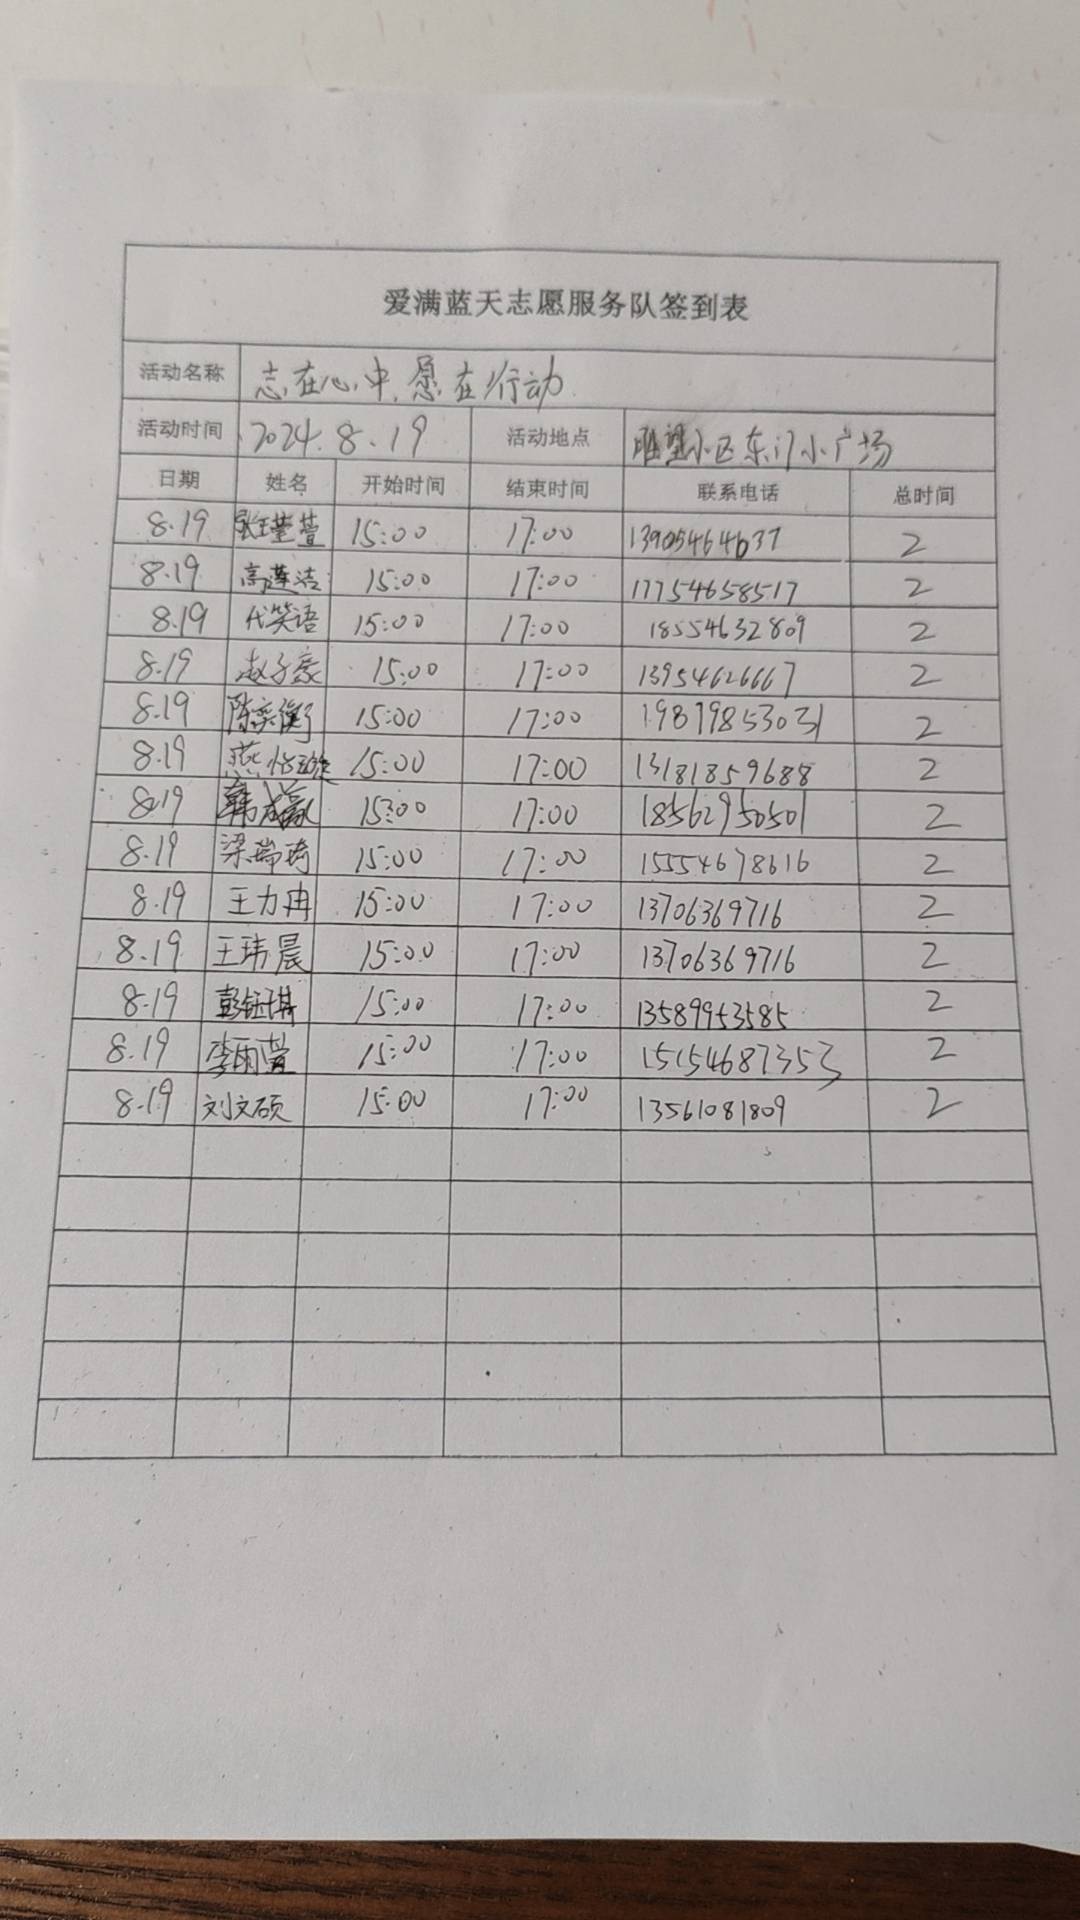 爱满蓝天志愿服务队签到表
活动名称 志在心中,愿在行动
活动时间 2024.8.19 活动地点 望小区东门小广场
日期 姓名 开始时间 结束时间 联系电话 总时间
8.19 张瑾萱 15:00 17:00 13905464637 2
8.19 高莲洁 15:00 17:00 17754658517 2
8.19 代笑语 15:00 17:00 18554632809 2
8.19 赵子豪 15:00 17:00 13954626667 2
8.19 陈奕衡 15:00 17:00 19879853031 2
8.19 燕怡璇 15:00 17:00 13181859688 2
8.19 韩 15:00 17:00 18562950501 2
8.19 梁瑞琦 15:00 17:00 15554678616 2
8.19 王力冉 15:00 17:00 13706369716 2
8.19 王玮晨 15:00 17:00 13706369716 2
8.19 彭钰琪 15:00 17:00 13589953585 2
8.19 李雨萱 15:00 17:00 15154687353 2
8.19 刘文硕 15:00 17:00 13561081809 2